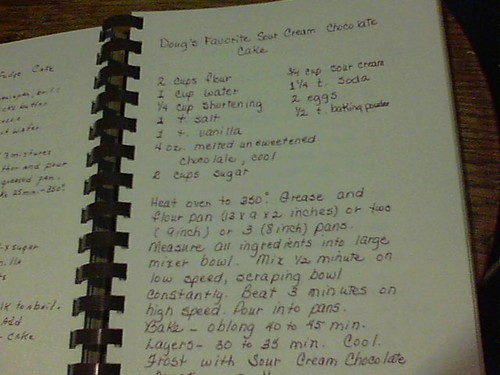 Fudge Cake
t water
3 mixtures
and pour
greased pan.
25 min. - 350°
sugar
to a boil.
Add
- Cake
Doug's Favorite Sour Cream Chocolate
Cake
2 cups flour
1 cup water
1/4 cup shortening
1 t. salt
1 t. vanilla
4 oz. melted unsweetened
chocolate, cool
2 cups sugar
3/4 cup sour cream
1 1/4 t. soda
2 eggs
1/2 t. baking powder
Heat oven to 350°. Grease and
flour pan (13 x 9 x 2 inches) or two
(9inch) or 3 (8inch) pans.
Measure all ingredients into large
mixer bowl. Mix 1/2 minute on
low speed, scraping bowl
constantly. Beat 3 minutes on
high speed. Pour into pans.
Bake - oblong 40 to 45 min.
Layers - 30 to 35 min. Cool.
Frost with Sour Cream Chocolate